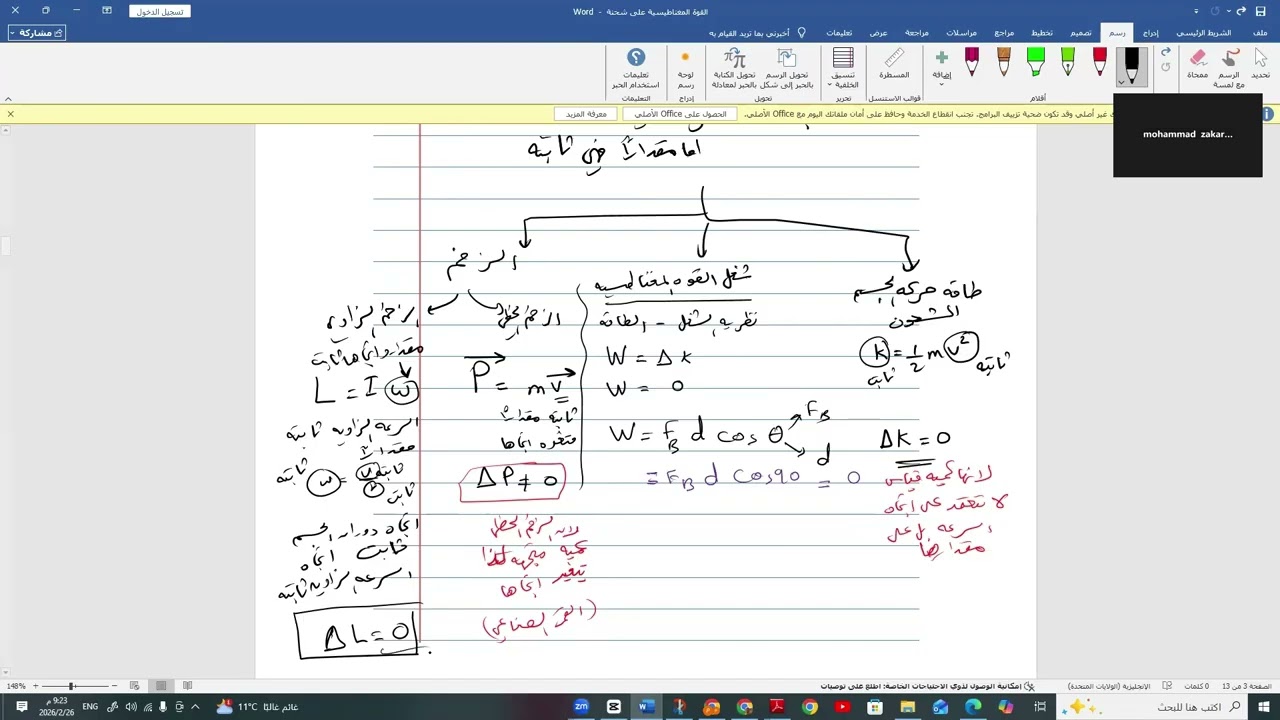 القوة المغناطيسية على شحنة - Word
تسجيل الدخول
ملف
الشريط الرئيسي
إدراج
رسم
تصميم
تخطيط
مراجع
مراسلات
مراجعة
عرض
تعليمات
أخبرني بما تريد القيام به
مشاركة
تحديد
الرسم مع لمسة
ممحاة
أقلام
إضافة
المسطرة
قوالب الاستنسل
تنسيق الخلفية
تحرير
تحويل الرسم إلى شكل
تحويل الكتابة بالحبر لمعادلة
تحويل
لوحة رسم
إدراج
تعليمات استخدام الحبر
التعليمات
غير أصلي وقد تكون ضحية تزييف البرامج. تجنب انقطاع الخدمة وحافظ على أمان ملفاتك اليوم مع Office الأصلي.
الحصول على Office الأصلي
معرفة المزيد
mohammad zakar...
اما مقداراً فهي ثابته
طاقة حركة الجسم
المشحون
K = 1/2 m v²
ثابتة
ثابته
ΔK = 0
لانها كمية قياسية
لا تعتمد على اتجاه
السرعة بل على
مقدارها
شغل القوه المغناطيسيه
نظرية الشغل - الطاقة
W = Δk
W = 0
W = F_B d cos θ
F_B
d
= F_B d Cos 90 = 0
الزخم
الزخم الخطي
P = mv
ثابته مقداراً
متغيره اتجاها
ΔP ≠ 0
لان الزخم الخطي
كمية متجهه لذا
يتغير اتجاها
(القمر الصناعي)
الزخم الزاوي
مقدارا واتجاها ثابتة
L = I ω
السرعه الزاويه ثابتة
مقداراً
ثابتة ω = v ثابتة
r ثابت
اتجاه دوران الجسم
ثابت اتجاه
السرعه الزاوية ثابتة
ΔL = 0
الصفحة 3 من 13
0 كلمات
الإنجليزية (الولايات المتحدة)
إمكانية الوصول لذوي الاحتياجات الخاصة: اطلع على توصيات
148%
اكتب هنا للبحث
11°C غائم غالبًا
ENG
9:23 م
2026/2/26